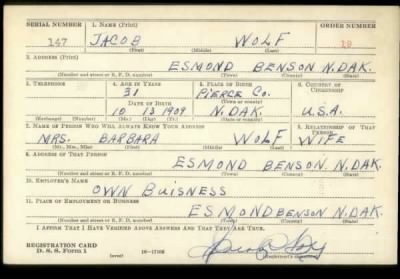 SERIAL NUMBER 1. NAME (Print) ORDER NUMBER
147 JACOB WOLF 19
(First) (Middle) (Last)
2. ADDRESS (Print)
ESMOND BENSON N.DAK.
(Number and street or R. F. D. number) (Town) (County) (State)
3. TELEPHONE 4. AGE IN YEARS 5. PLACE OF BIRTH 6. COUNTRY OF CITIZENSHIP
31 PIERCE CO.
DATE OF BIRTH (Town or county)
10 13 1909 N.DAK. U.S.A.
(Exchange) (Number) (Mo.) (Day) (Yr.) (State or country)
7. NAME OF PERSON WHO WILL ALWAYS KNOW YOUR ADDRESS 8. RELATIONSHIP OF THAT PERSON
MRS. BARBARA WOLF WIFE
(Mr., Mrs., Miss) (First) (Middle) (Last)
9. ADDRESS OF THAT PERSON
ESMOND BENSON N.DAK.
(Number and street or R. F. D. number) (Town) (County) (State)
10. EMPLOYER'S NAME
OWN BUISNESS
11. PLACE OF EMPLOYMENT OR BUSINESS
ESMOND BENSON N.DAK.
(Number and street or R. F. D. number) (Town) (County) (State)
I AFFIRM THAT I HAVE VERIFIED ABOVE ANSWERS AND THAT THEY ARE TRUE.
REGISTRATION CARD
D. S. S. Form 1 (over)